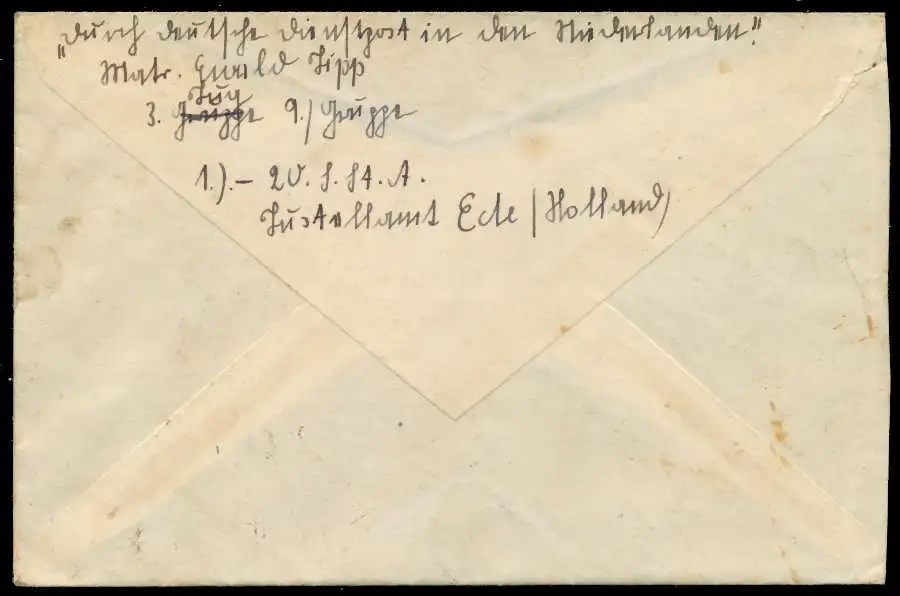 „Durch deutsche Dienstpost in den Niederlanden."
Matr. Ewald Zipp
Zug
3. Gruppe 9./Gruppe
1.).- 20. S. St. A.
Zustellamt Ede (Holland)